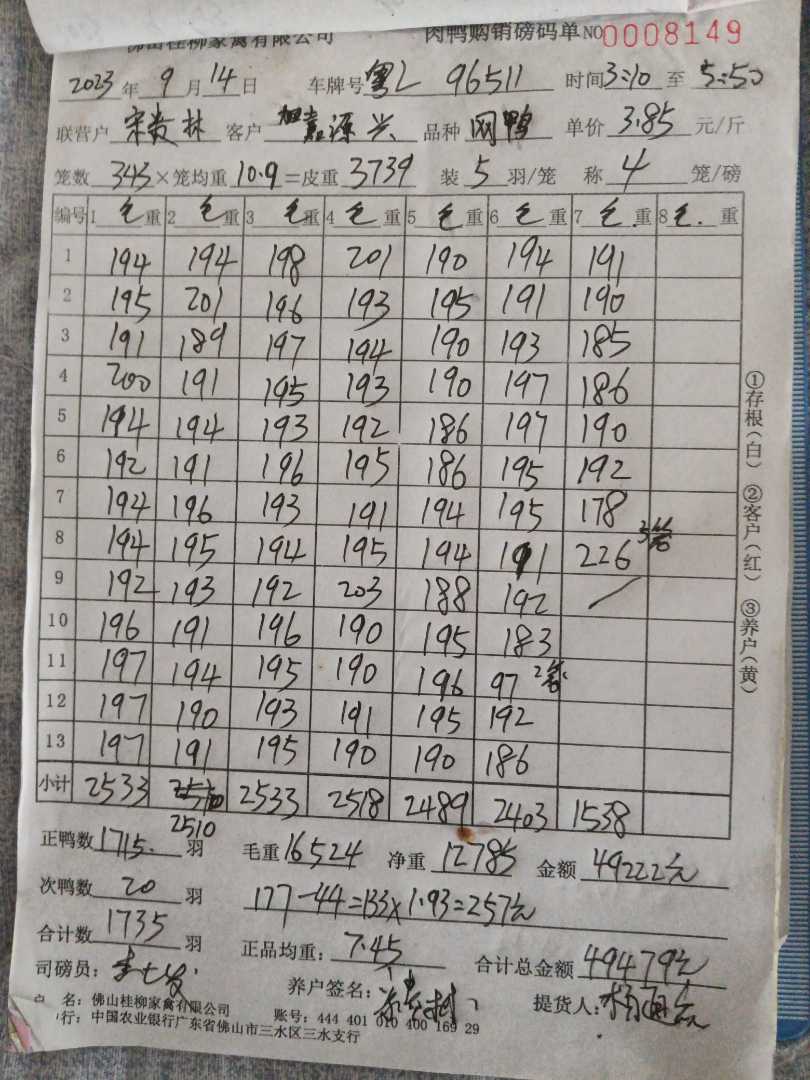 佛山桂柳家禽有限公司 肉鸭购销磅码单 NO 0008149
2023年 9月14日 车牌号 粤L 96511 时间 3:10 至 5:50
联营户 宋贵林 客户 源兴 品种 网鸭 单价 3.85 元/斤
笼数 343 ×笼均重 10.9 =皮重 3739 装 5 羽/笼 称 4 笼/磅
编号 1 毛重 2 毛重 3 毛重 4 毛重 5 毛重 6 毛重 7 毛重 8 毛重
1 194 194 198 201 190 194 191
2 195 201 196 193 195 191 190
3 191 189 197 194 190 193 185
4 200 191 195 193 190 197 186
5 194 194 193 192 186 197 190
6 192 191 196 195 186 195 192
7 194 196 193 191 194 195 178
8 194 195 194 195 194 191 226 3笼
9 192 193 192 203 188 192
10 196 191 196 190 195 183
11 197 194 195 190 196 97 2笼
12 197 190 193 191 195 192
13 197 191 195 190 190 186
小计 2533 2510 2533 2518 2489 2403 1538
2510
正鸭数 1715. 羽 毛重 16524 净重 12785 金额 49222元
次鸭数 20 羽 177-44=133×1.93=257元
合计数 1735 羽 正品均重: 7.45 合计总金额 49479元
司磅员: 养户签名: 提货人:
户 名: 佛山桂柳家禽有限公司 账号: 444 401 010 400 169 29
行: 中国农业银行广东省佛山市三水区三水支行
①存根(白) ②客户(红) ③养户(黄)